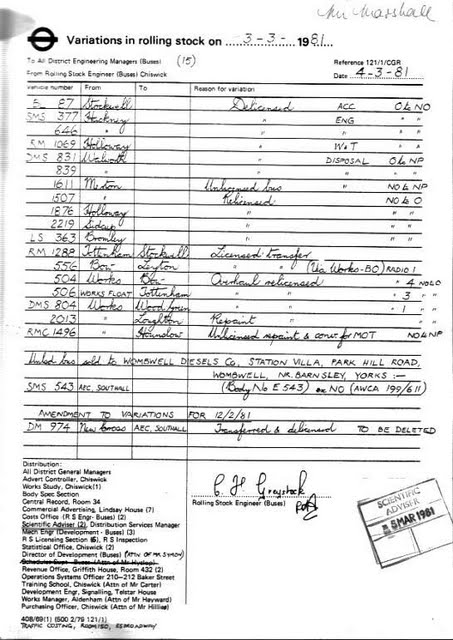 Mr Marshall
Variations in rolling stock on 3-3- 1981.
To All District Engineering Managers (Buses) (15) Reference 121/1/CGR
From Rolling Stock Engineer (Buses) Chiswick Date 4-3-81
Vehicle number From To Reason for variation
87 Stockwell Delicensed ACC O to NO
SMS 377 Hackney " ENG " "
646 " " " " "
RM 1069 Holloway " W&T " "
DMS 831 Walworth " DISPOSAL O to NP
839 " " " "
1611 Merton Unlicensed bus " NO to NP
1507 " Relicensed NO to O
1876 Holloway " " "
2219 Sidcup " " "
LS 363 Bromley " " "
RM 1288 Tottenham Stockwell Licensed transfer
556 Bow Leyton " " (Via Works-BO) RADIO 1
504 Works Bow Overhaul relicensed " 4 NO to O
506 WORKS FLOAT Tottenham " " " 3 "
DMS 804 Works Wood Green " " " 1 "
2013 " Loughton Repaint "
RMC 1496 " Hounslow Unlicensed repaint & conv for MOT NO to NP
Under bus sold to WOMBWELL DIESELS CO, STATION VILLA, PARK HILL ROAD,
WOMBWELL, NR. BARNSLEY, YORKS :—
SMS 543 AEC, SOUTHALL (Body No E 543) NO (AWCA 199/611)
AMENDMENT TO VARIATIONS FOR 12/2/81
DM 974 New Cross AEC, SOUTHALL Transferred & delicensed TO BE DELETED
Distribution:
All District General Managers
Advert Controller, Chiswick
Works Study, Chiswick(1)
Body Spec Section
Central Record, Room 34
Commercial Advertising, Lindsay House (7)
Costs Office (R S Engr- Buses) (2)
Scientific Adviser (2), Distribution Services Manager
Mech Engr (Development - Buses) (3)
R S Licensing Section (6), R S Inspection
Statistical Office, Chiswick (2)
Director of Development (Buses) (Attn of Mr
Scheduler Supt - Buses (Attn of Mr Hyslop)
Revenue Office, Griffith House, Room 432 (2)
Operations Systems Officer 210–212 Baker Street
Training School, Chiswick (Attn of Mr Carter)
Development Engr, Signalling, Telstar House
Works Manager, Aldenham (Attn of Mr Hayward)
Purchasing Officer, Chiswick (Attn of Mr Hillier)
C H Greystock
Rolling Stock Engineer (Buses)
SCIENTIFIC
ADVISER
5 MAR 1981
408/69(1) (500 2/79 121/1)
TRAFFIC COSTING, ROOM 150, 55 BROADWAY